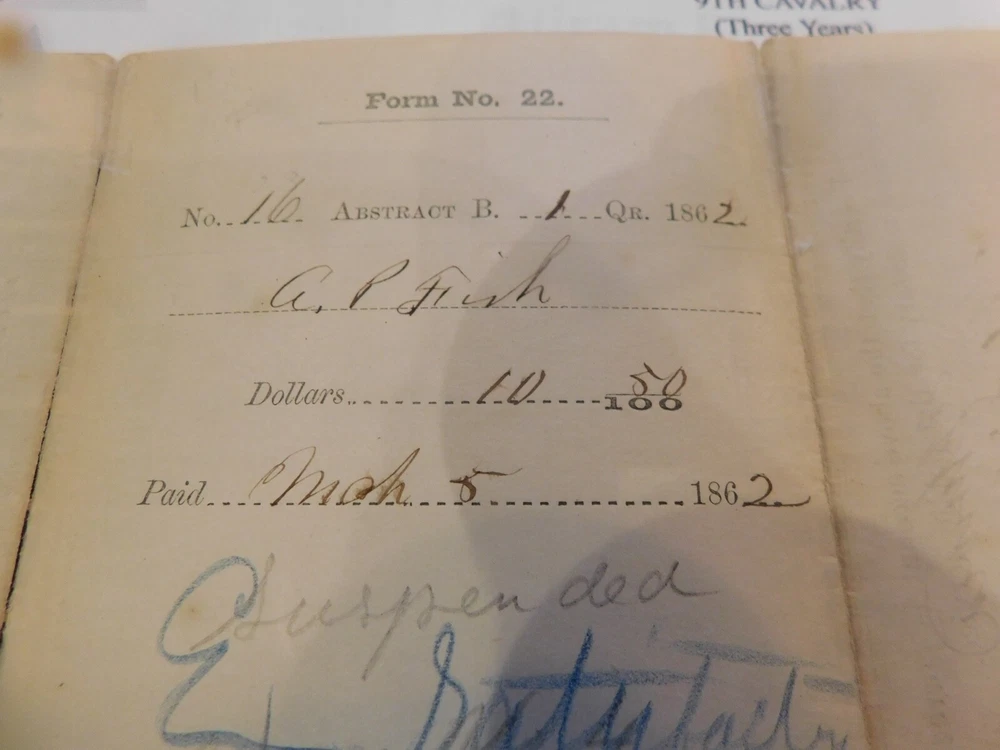 9TH CAVALRY
(Three Years)
Form No. 22.
No. 16 ABSTRACT B. 1 QR. 1862
A. P Fish
Dollars 10 50/100
Paid Mch 5 1862
Suspended